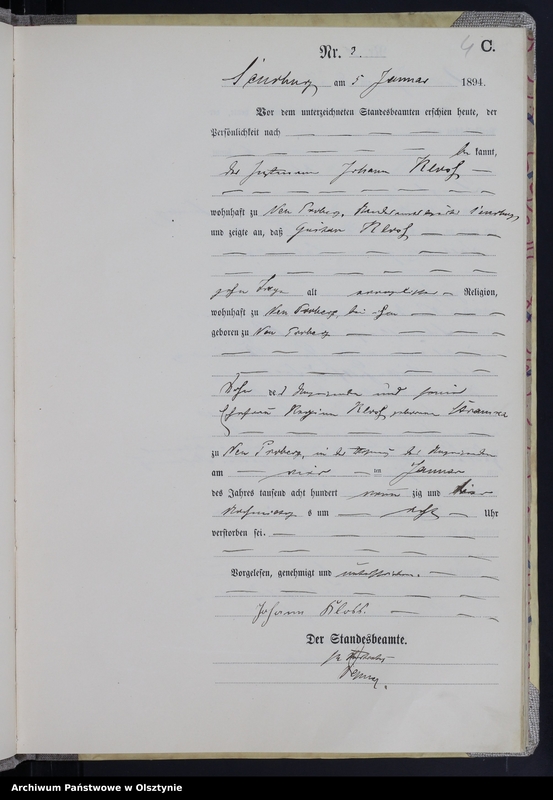 4 C.
Nr. 2.
Sensburg am 5 Januar 1894.
Vor dem unterzeichneten Standesbeamten erschien heute, der
Persönlichkeit nach
be kannt,
der Johann Kloß
wohnhaft zu Neu Proberg, Sensburg,
und zeigte an, daß Gustav Kloß
zehn Tage alt evangelischer Religion,
wohnhaft zu Neu Proberg, bei ihm
geboren zu Neu Proberg
Sohn des Anzeigenden und seiner
Ehefrau Regina Kloß geborenen
zu Neu Proberg, in der Wohnung des Anzeigenden
am vier ten Januar
des Jahres tausend acht hundert neun zig und vier
Nachmittags s um acht Uhr
verstorben sei.
Vorgelesen, genehmigt und unterschrieben.
Johann Kloß.
Der Standesbeamte.
Archiwum Państwowe w Olsztynie